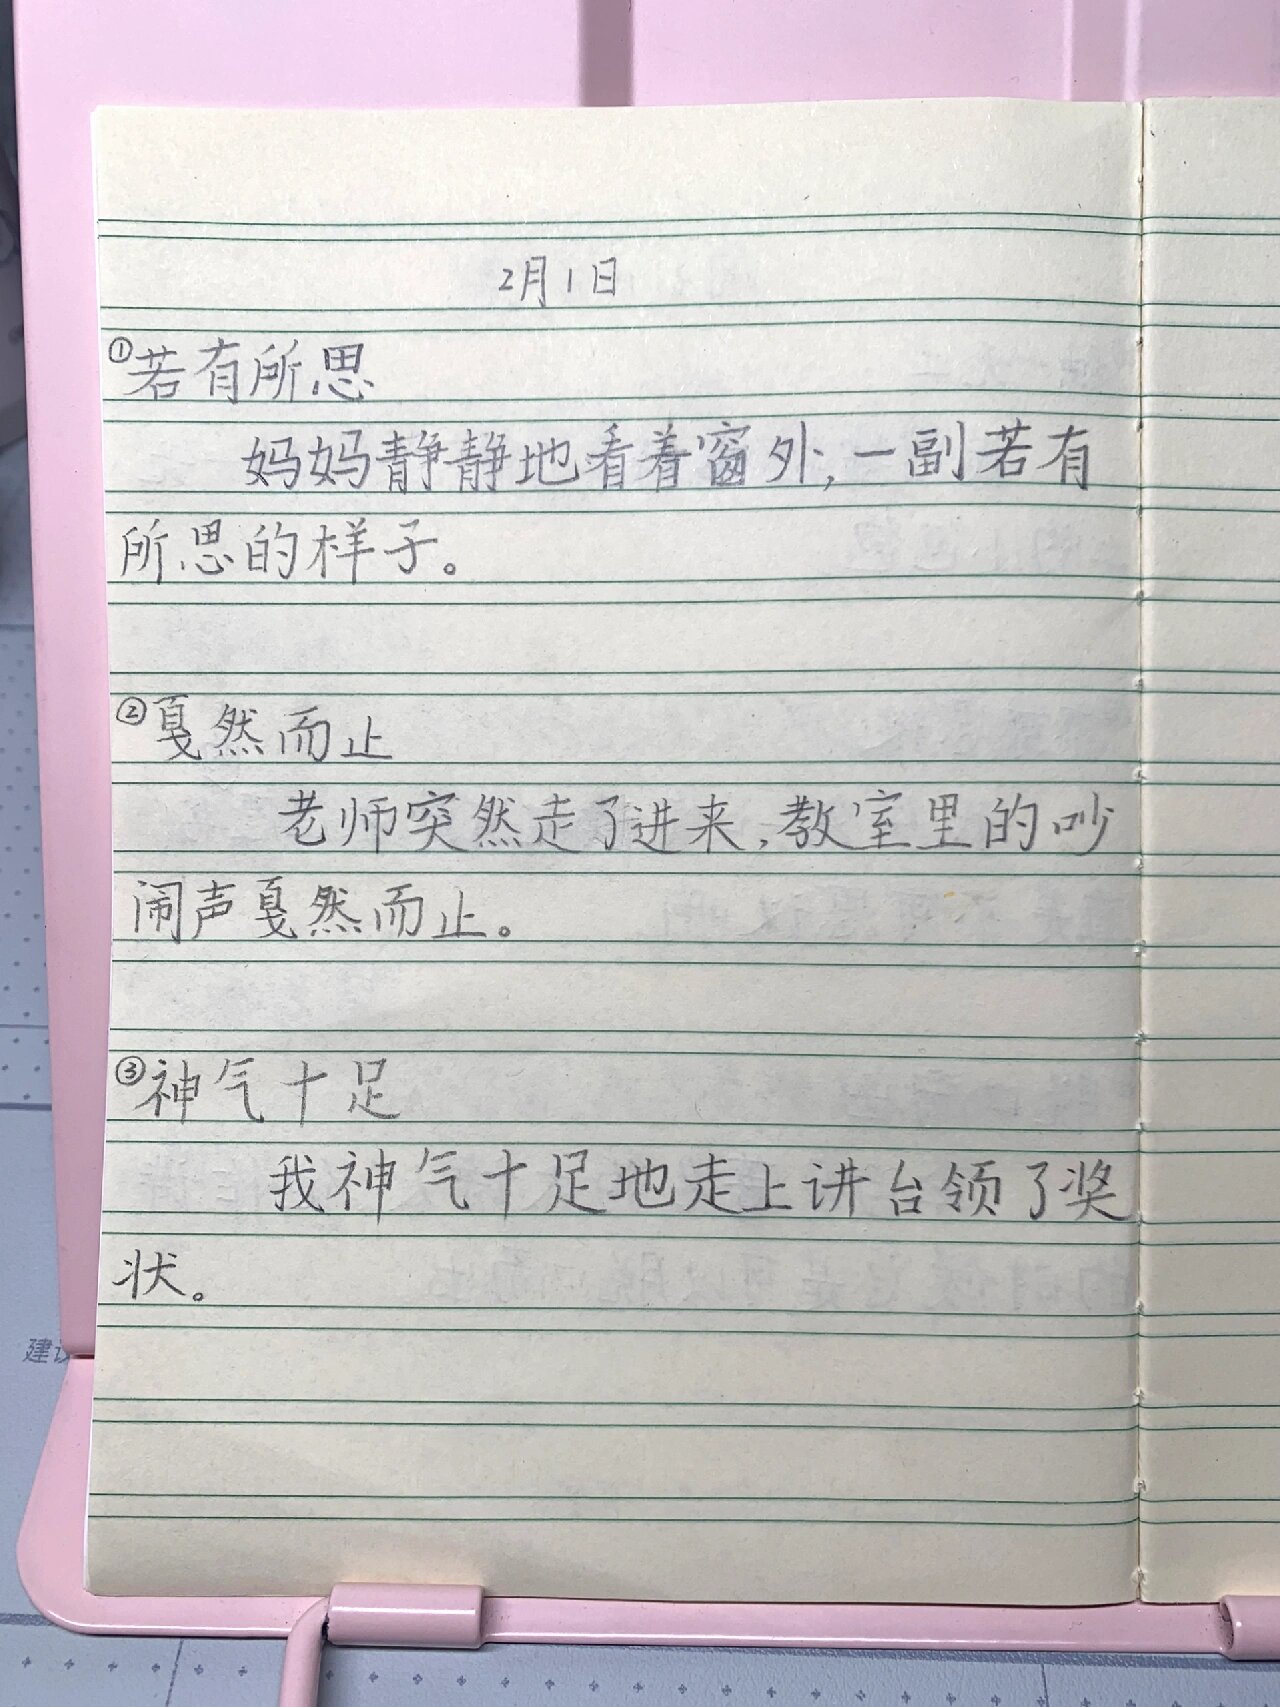 2月1日
①若有所思
妈妈静静地看着窗外,一副若有
所思的样子。
②戛然而止
老师突然走了进来,教室里的吵
闹声戛然而止。
③神气十足
我神气十足地走上讲台领了奖
状。
建议